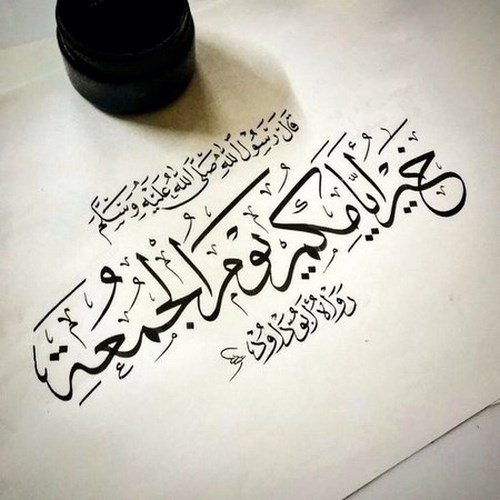 قَالَ رَسُولُ اللّٰهِ صَلَّى اللّٰهُ عَلَيْهِ وَسَلَّمَ
خَيْرُ أَيَّامِكُمْ يَوْمُ الْجُمُعَةِ
رَوَاهُ أَبُو دَاوُد